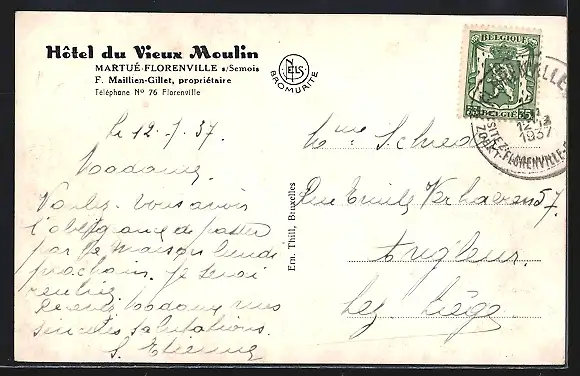 Hôtel du Vieux Moulin
MARTUÉ-FLORENVILLE s/Semois
F. Maillien-Gillet, propriétaire
Téléphone Nº 76 Florenville
NELS
BROMURITE
BELGIQUE
35
1937
FLORENVILLE
Ern. Thill, Bruxelles
le 12.7.37.
Madame,
Voulez-vous avoir
l'obligeance de passer
par la maison lundi
prochain. Je serai
rentrée.
Recevez Madame mes
sincères salutations.
S. Etienne
Mme
Rue Emile Verhaeren 57.
Angleur.
Lez Liége.